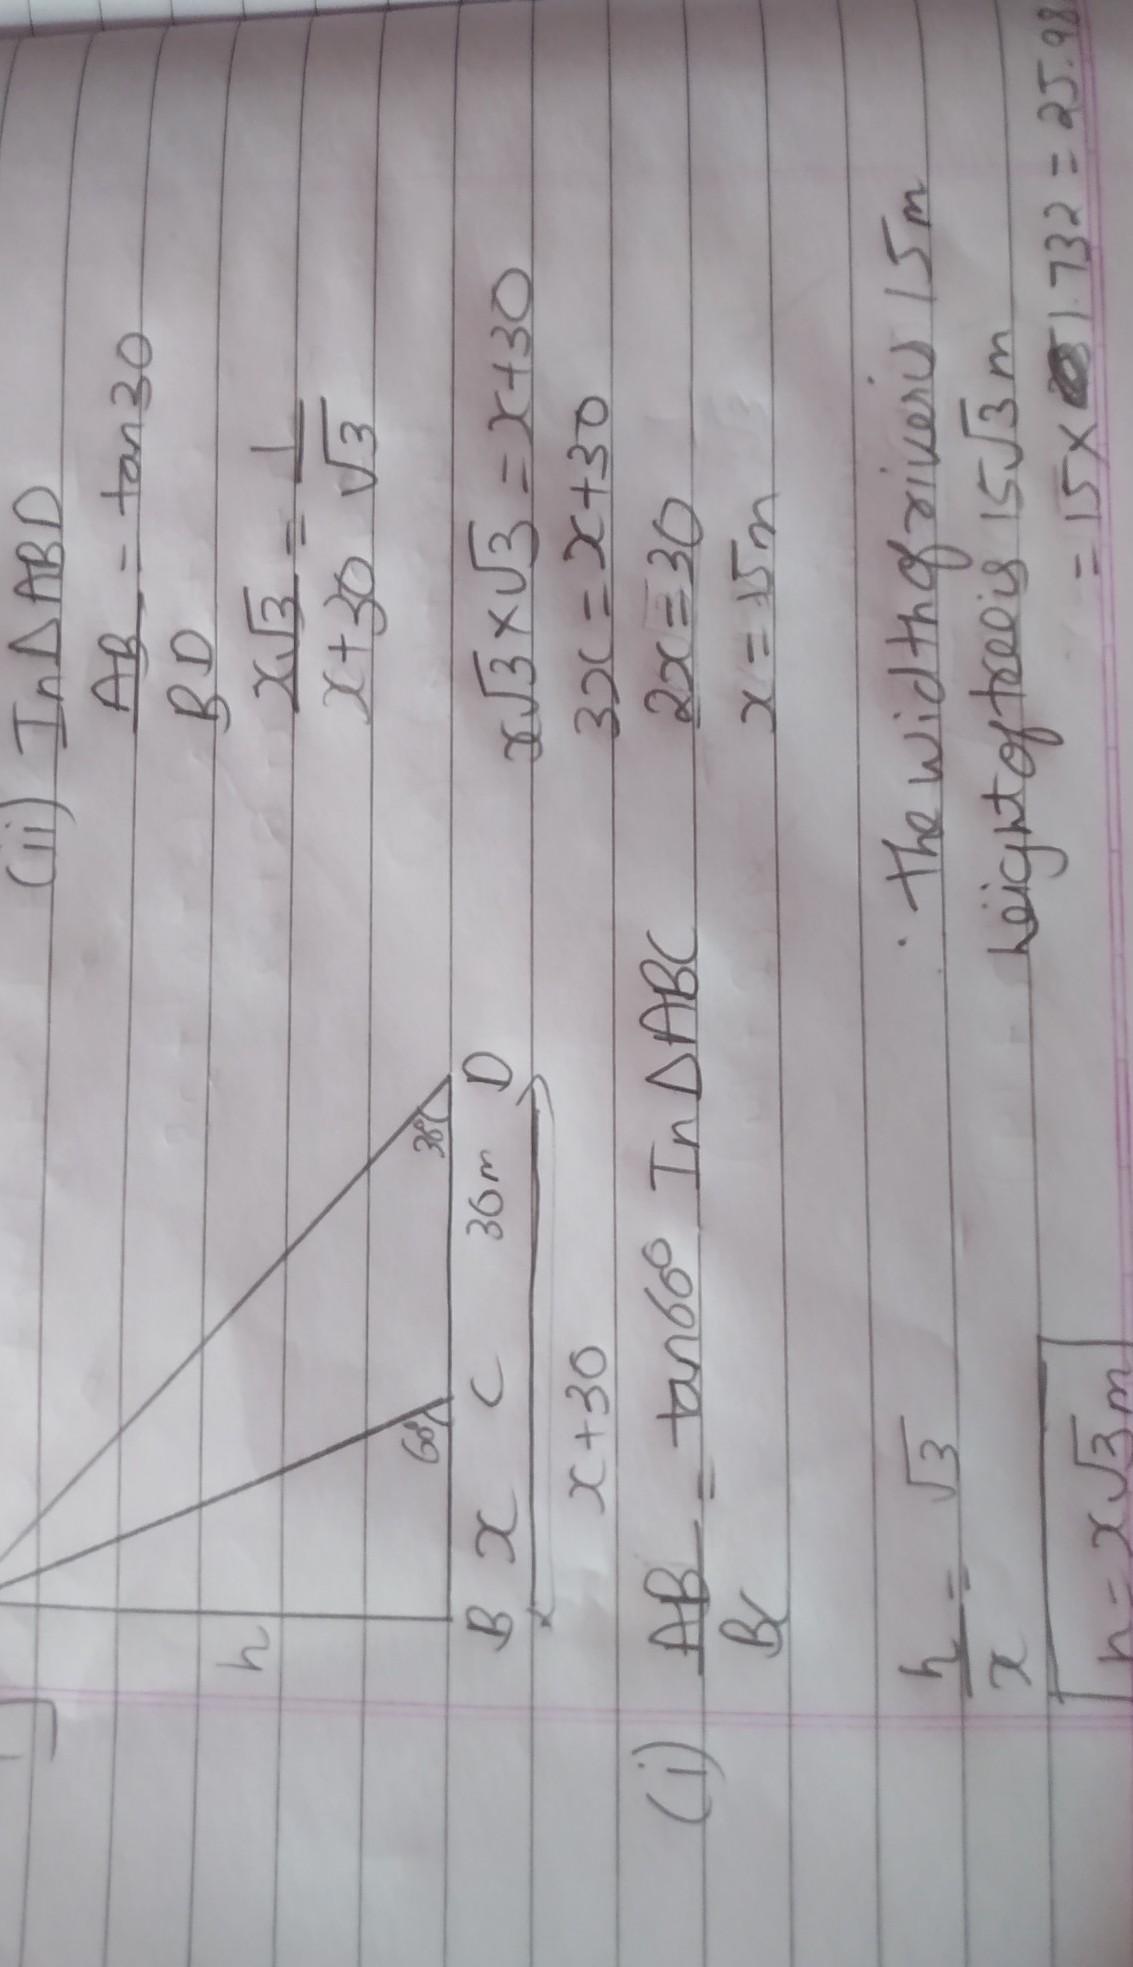 h
60°
30°
B x C 30m D
x+30
(i) AB = tan60° In ΔABC
BC
h = √3
x
h = x√3 m
(ii) In Δ ABD
AB = tan30
BD
x√3 = 1
x+30 √3
x√3 × √3 = x+30
3x = x+30
2x = 30
x = 15m
∴ the width of river is 15m
height of tree is 15√3 m
= 15 × 1.732 = 25.98